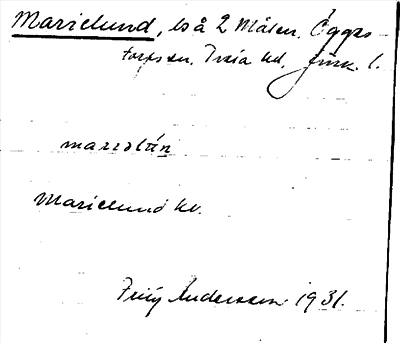 Marielund, ls å 2 Målen, Öggestorps sn. Tveta hd, Jönk. l.
mareslún
Marielund kv.
Frity Andersson 1931.